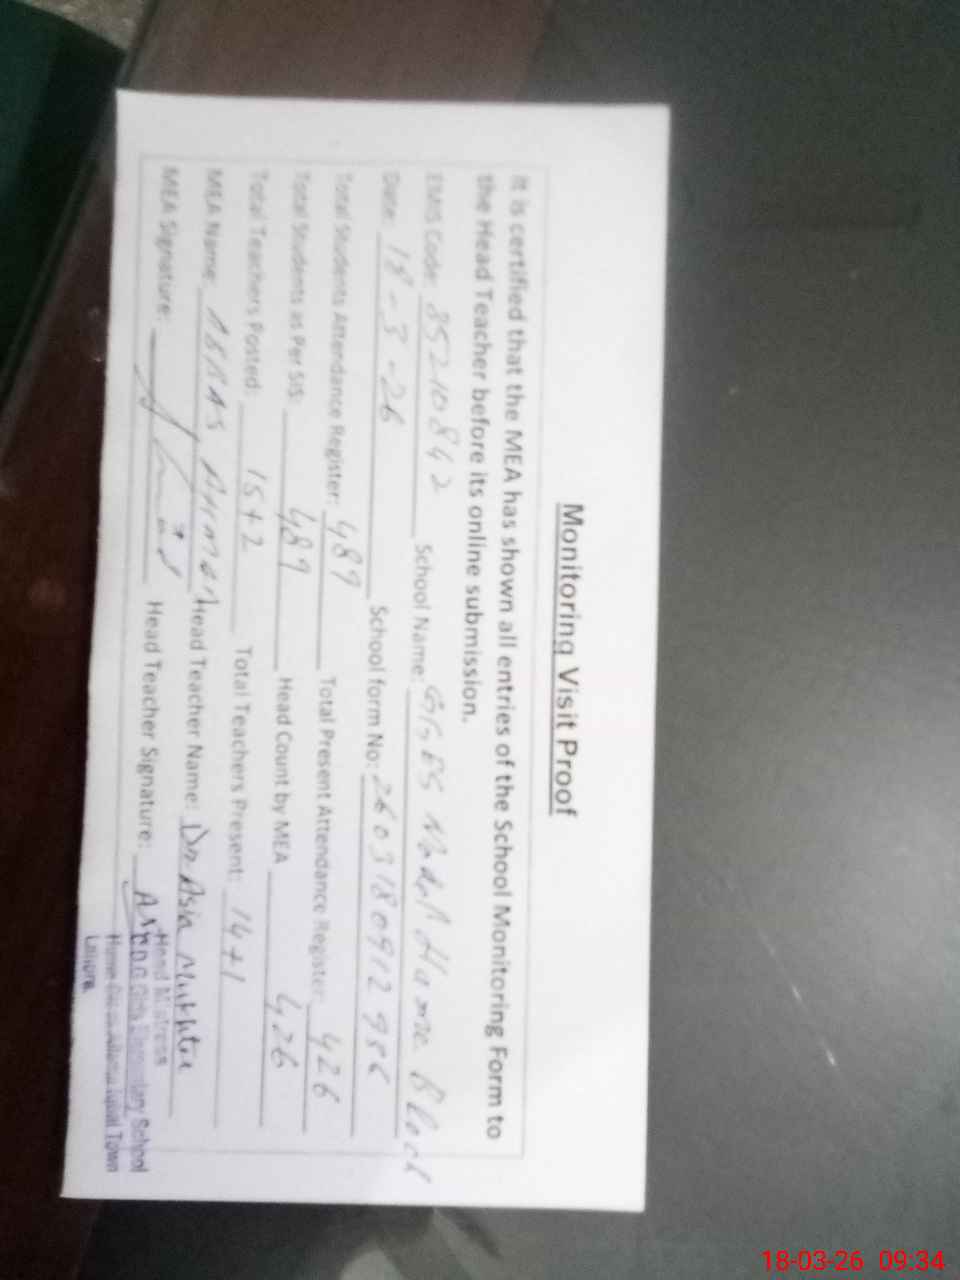 Monitoring Visit Proof
It is certified that the MEA has shown all entries of the School Monitoring Form to
the Head Teacher before its online submission.
EMIS Code: 35210842 School Name: GGES Model Home Block
Date: 18-3-26 School form No:
Total Students Attendance Register: 489 Total Present Attendance Register: 426
Total Students as Per SIS: 489 Head Count by MEA 426
Total Teachers Posted: 15+2 Total Teachers Present: 14+1
MEA Name: ABBAS AHMAD Head Teacher Name: Dr. Asia Mukhtar
MEA Signature: Head Teacher Signature:
Head Mistress
C.D.G Girls Elementary School
Town
Lahore.
18-03-26 09:34